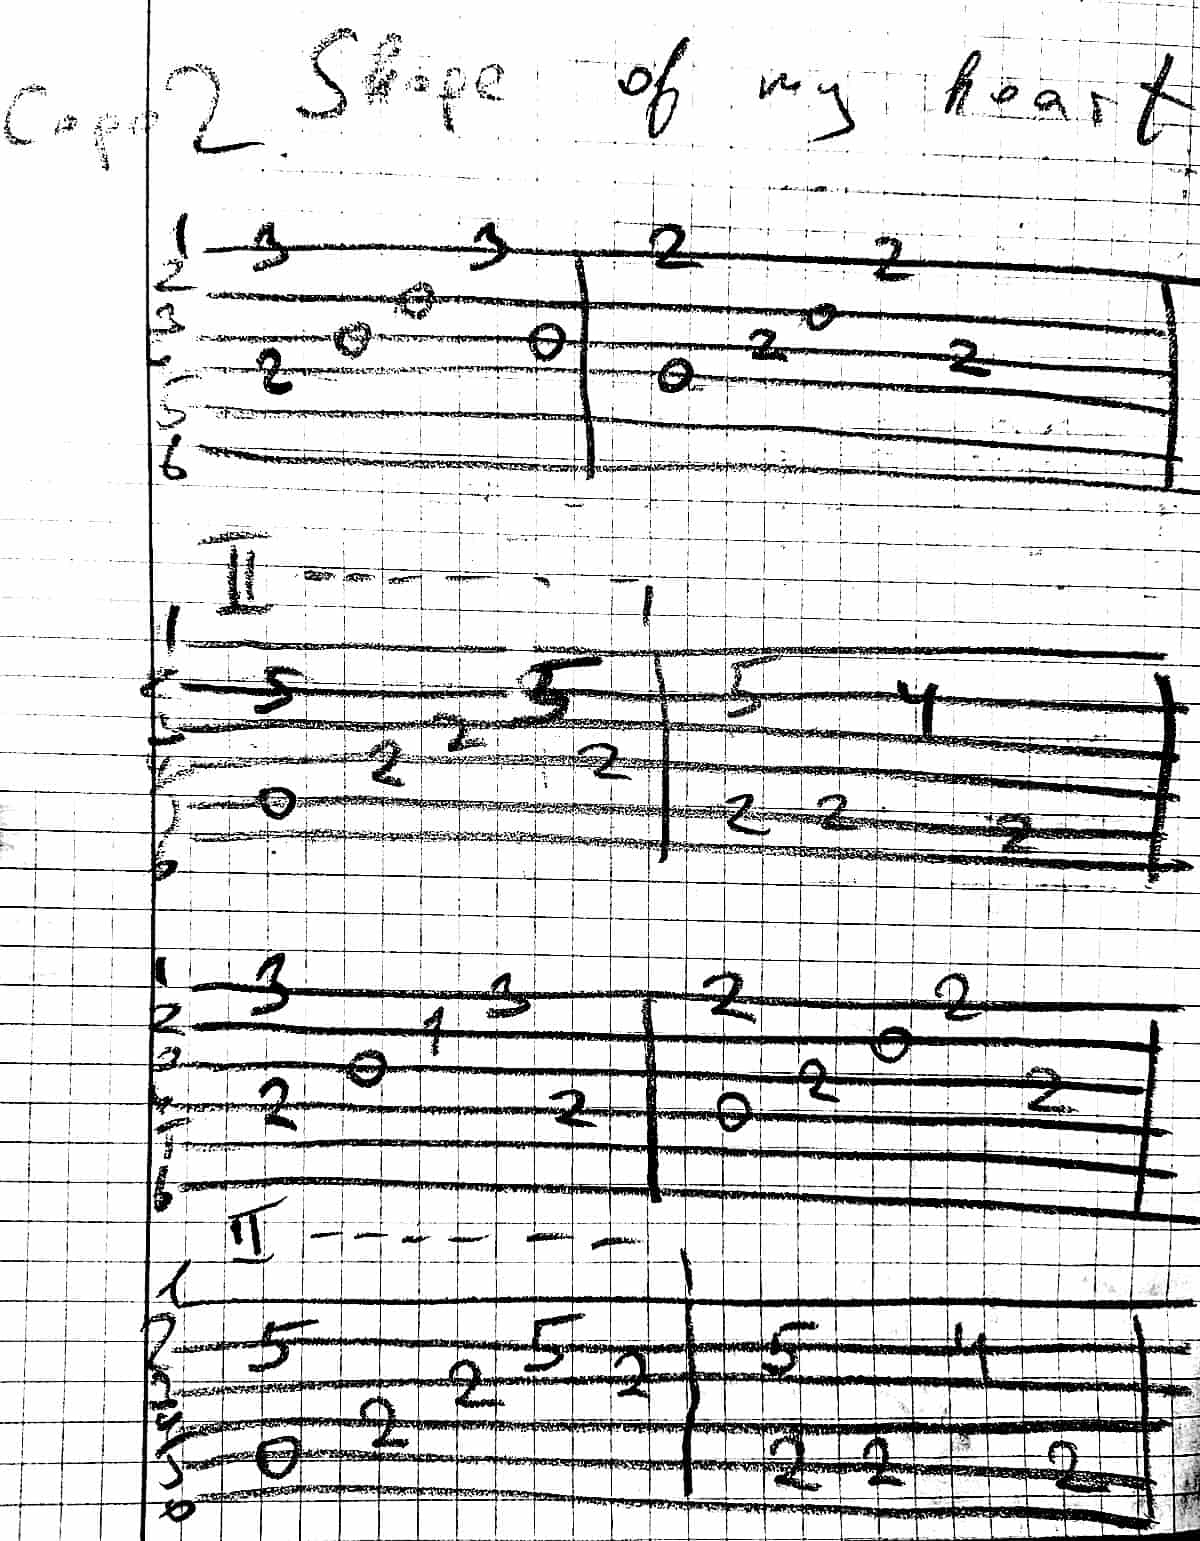 Capo 2. Shape of my heart
1 3 3 2 2
2 0 0
3 0 0 2 2
2 0
5
6
II
1
5 5 5 4
2
2 2
0 2 2 2
1 3 3 2 2
2 1 0
3 0 2 2
4 2 2 0
II
1
2 5 5 5 4
3 2 2
4 2
5 0 2 2 2
6